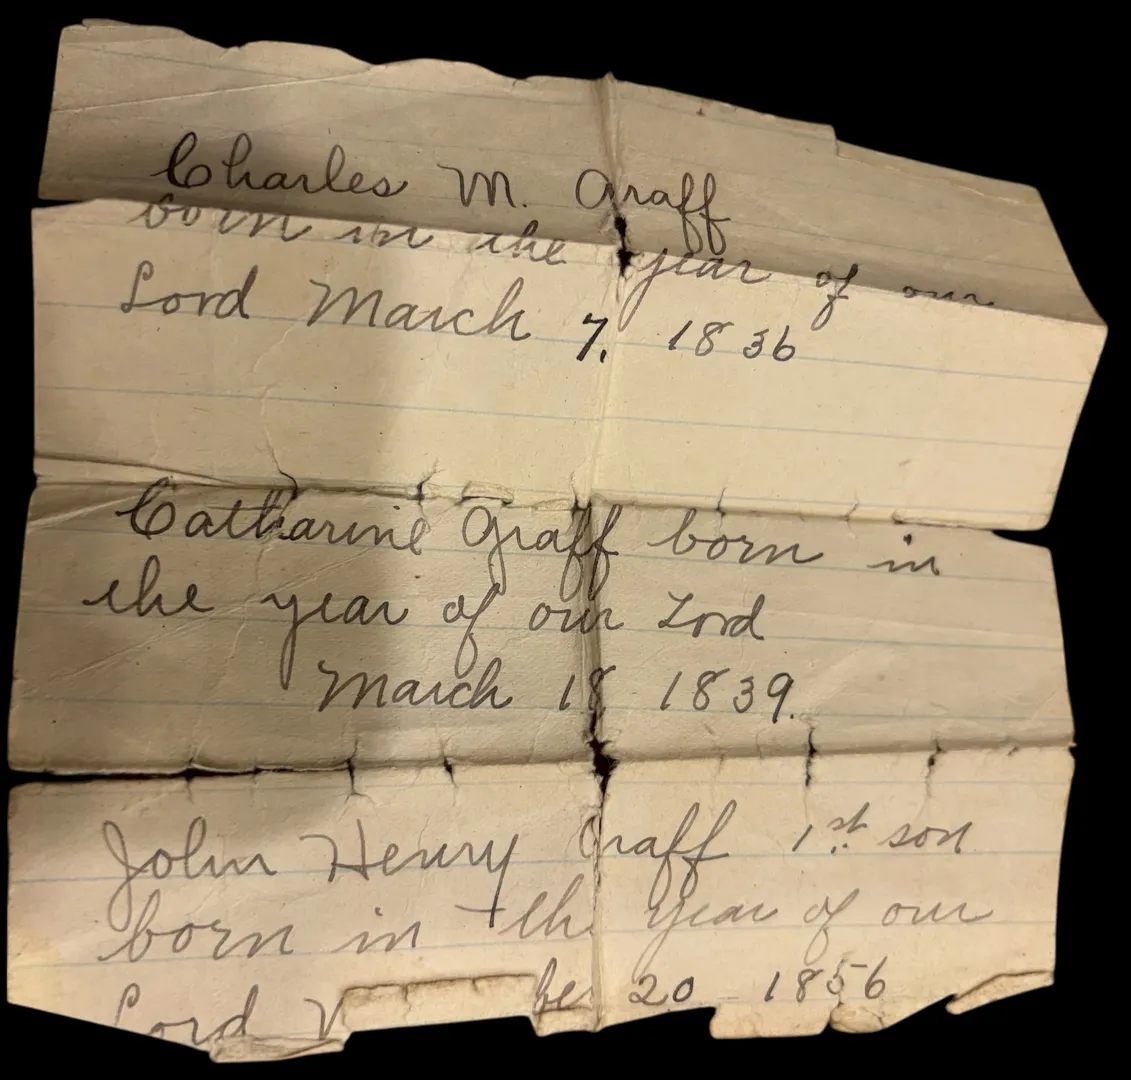 Charles M. Graff
born in the year of our
Lord March 7, 1836
Catharine Graff born in
the year of our Lord
March 18 1839.
John Henry Graff 1st son
born in the year of our
Lord 20 1856